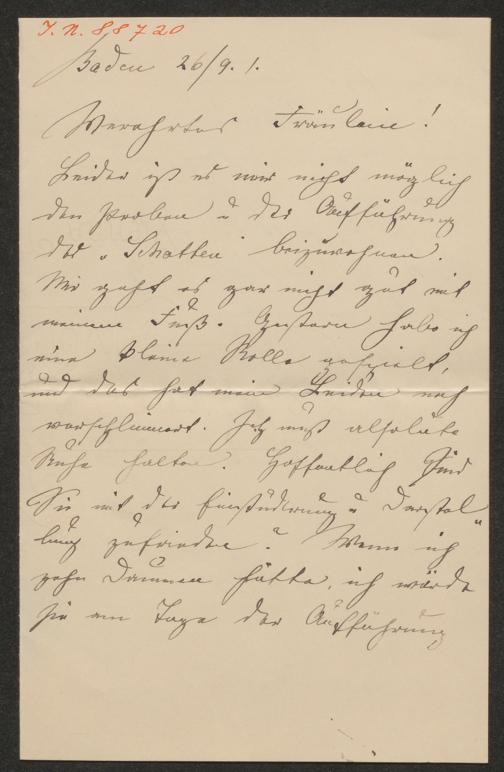 I. N. 88720
Baden 26/9. 1.
Verehrtes Fräulein!
Leider ist es mir nicht möglich
den Proben u der Aufführung
der „Schatten" beizuwohnen.
Mir geht es gar nicht gut mit
meinem Fuß. Gestern habe ich
eine kleine Rolle gespielt,
und das hat mein Leiden noch
verschlimmert. Ich muß absolute
Ruhe halten. Hoffentlich sind
Sie mit der Einstudierung u Darstel-
lung zufrieden? Wenn ich
zehn Daumen hätte, ich würde
sie am Tage der Aufführung